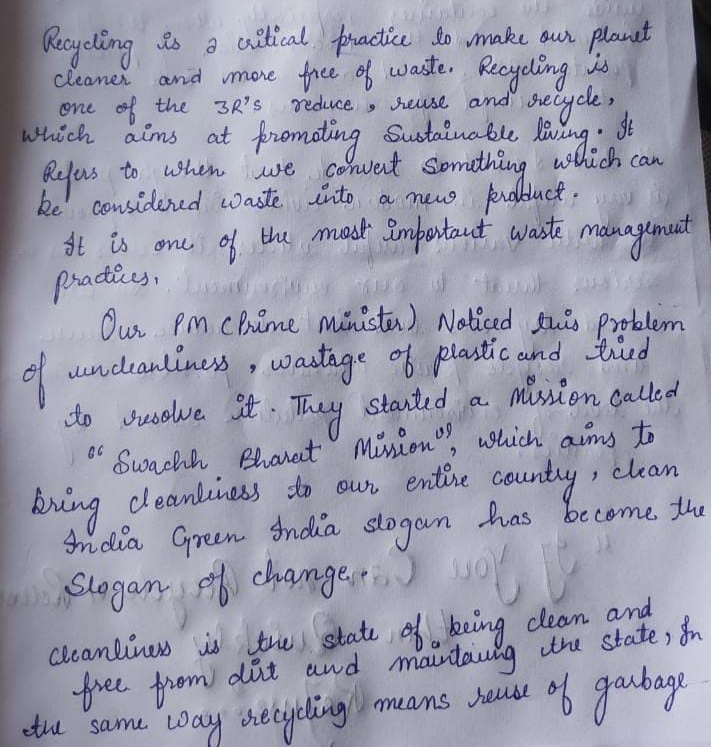 Recycling is a critical practice to make our planet
cleaner and more free of waste. Recycling is
one of the 3R's reduce, reuse and recycle,
which aims at promoting Sustainable living. It
Refers to when we convert Something which can
be considered waste into a new product.
It is one of the most important waste management
practices.
Our PM (Prime Minister) Noticed this Problem
of uncleanliness, wastage of plastic and tried
to resolve it. They started a Mission called
"Swachh Bharat Mission", which aims to
bring cleanliness to our entire country, clean
India Green India slogan has become the
Slogan of change.
cleanliness is the state of being clean and
free from dirt and maintaing the state, In
the same way recycling means reuse of garbage